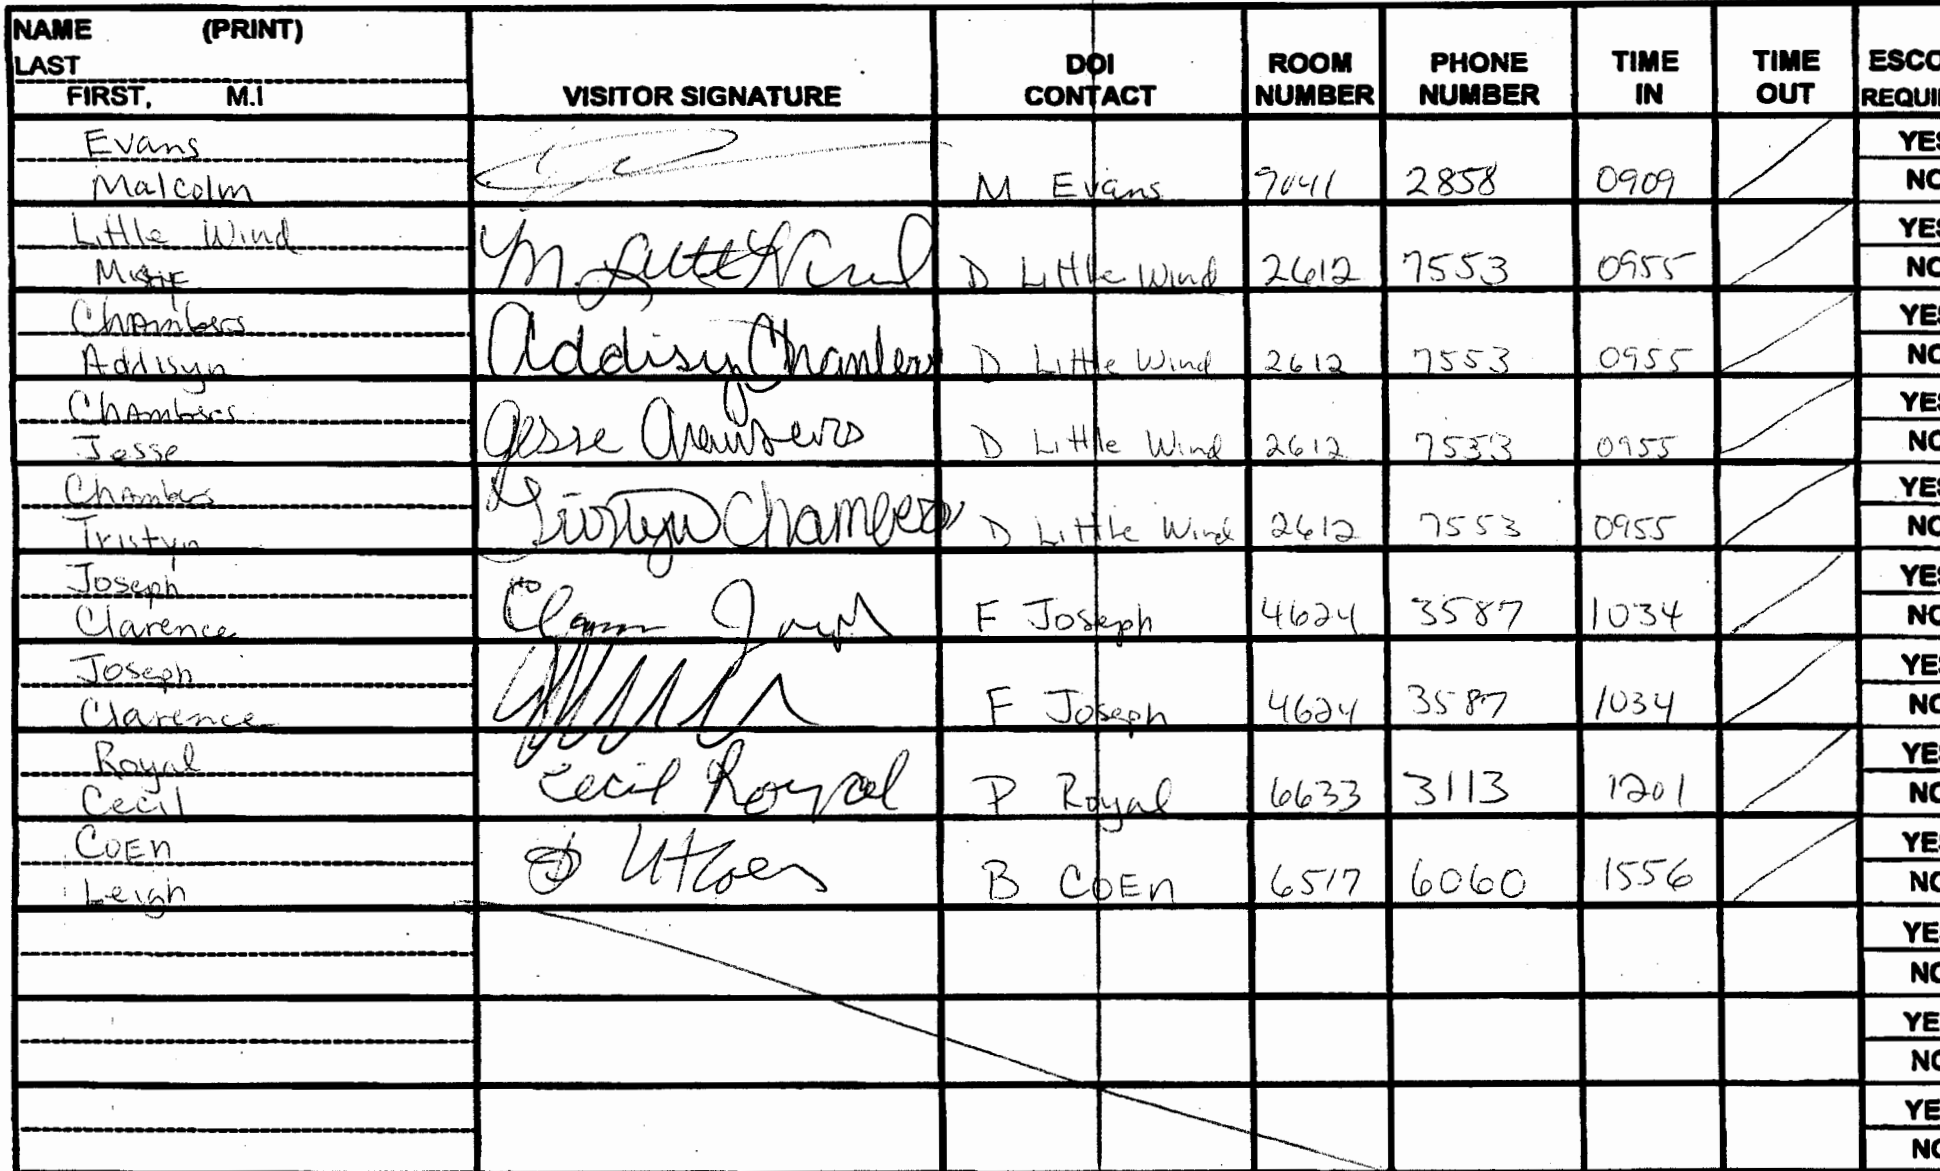 NAME (PRINT)
LAST
FIRST, M.I
VISITOR SIGNATURE
DOI CONTACT
ROOM NUMBER
PHONE NUMBER
TIME IN
TIME OUT
ESCO
REQUI
Evans
Malcolm M Evans 9041 2858 0909
YES
NO
Little Wind
M. Little Wind D Little Wind 2612 7553 0955
YES
NO
Chambers
Addisyn Addisyn Chambers D Little Wind 2612 7553 0955
YES
NO
Chambers
Jesse Jesse Chambers D Little Wind 2612 7553 0955
YES
NO
Chambers
Tristyn Tristyn Chambers D Little Wind 2612 7553 0955
YES
NO
Joseph
Clarence F Joseph 4624 3587 1034
YES
NO
Joseph
Clarence F Joseph 4624 3587 1034
YES
NO
Royal
Cecil Cecil Royal P Royal 6633 3113 1201
YES
NO
COEn
Leigh B COEn 6517 6060 1556
YES
NO
YE
NO
YE
NO
YE
NO